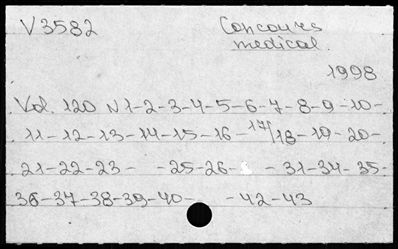 V3582 Concours
medical.
1998
Vol. 120 N 1-2-3-4-5-6-7-8-9-10-
11-12-13-14-15-16-17/18-19-20-
21-22-23- -25-26- - 31-34-35-
36-37-38-39-40- -42-43